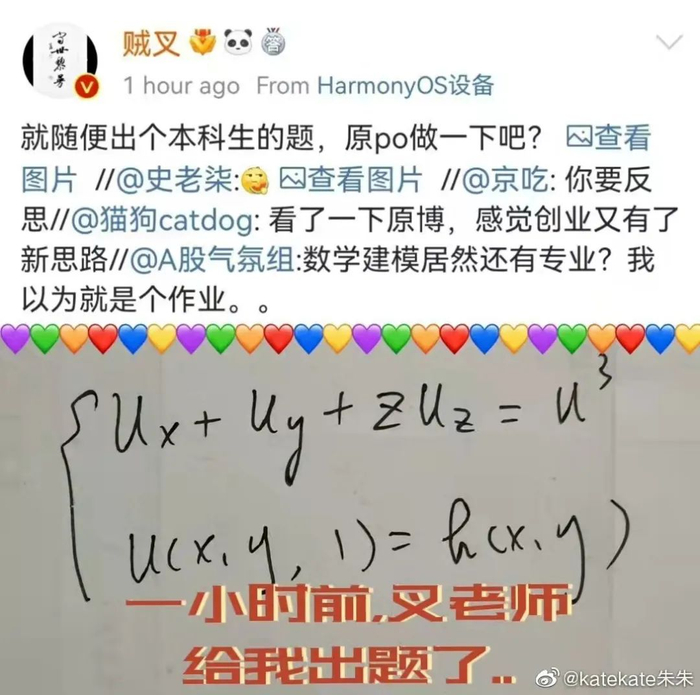 贼叉
1 hour ago From HarmonyOS设备
就随便出个本科生的题，原po做一下吧？ 查看
图片 //@史老柒: 查看图片 //@京吃: 你要反
思//@猫狗catdog: 看了一下原博，感觉创业又有了
新思路//@A股气氛组:数学建模居然还有专业？我
以为就是个作业。。
u_x + u_y + z u_z = u^3
u(x, y, 1) = h(x, y)
一小时前,叉老师
给我出题了..
@katekate朱朱